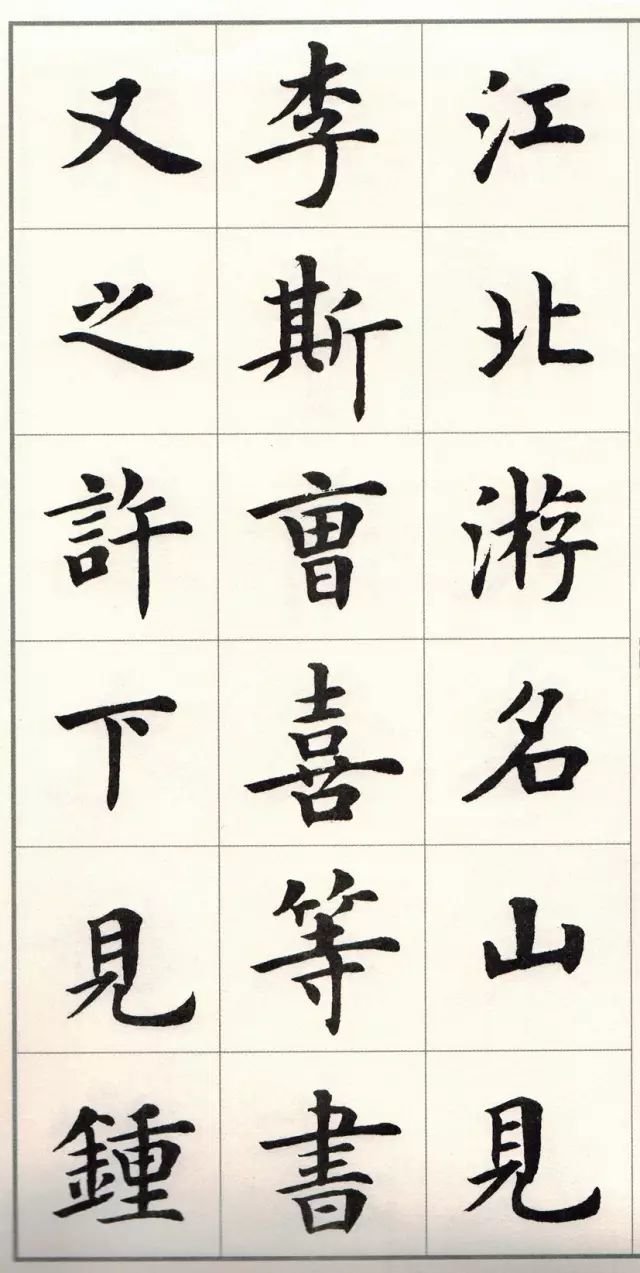 江北游名山見
李斯曹喜等書
又之許下見鍾